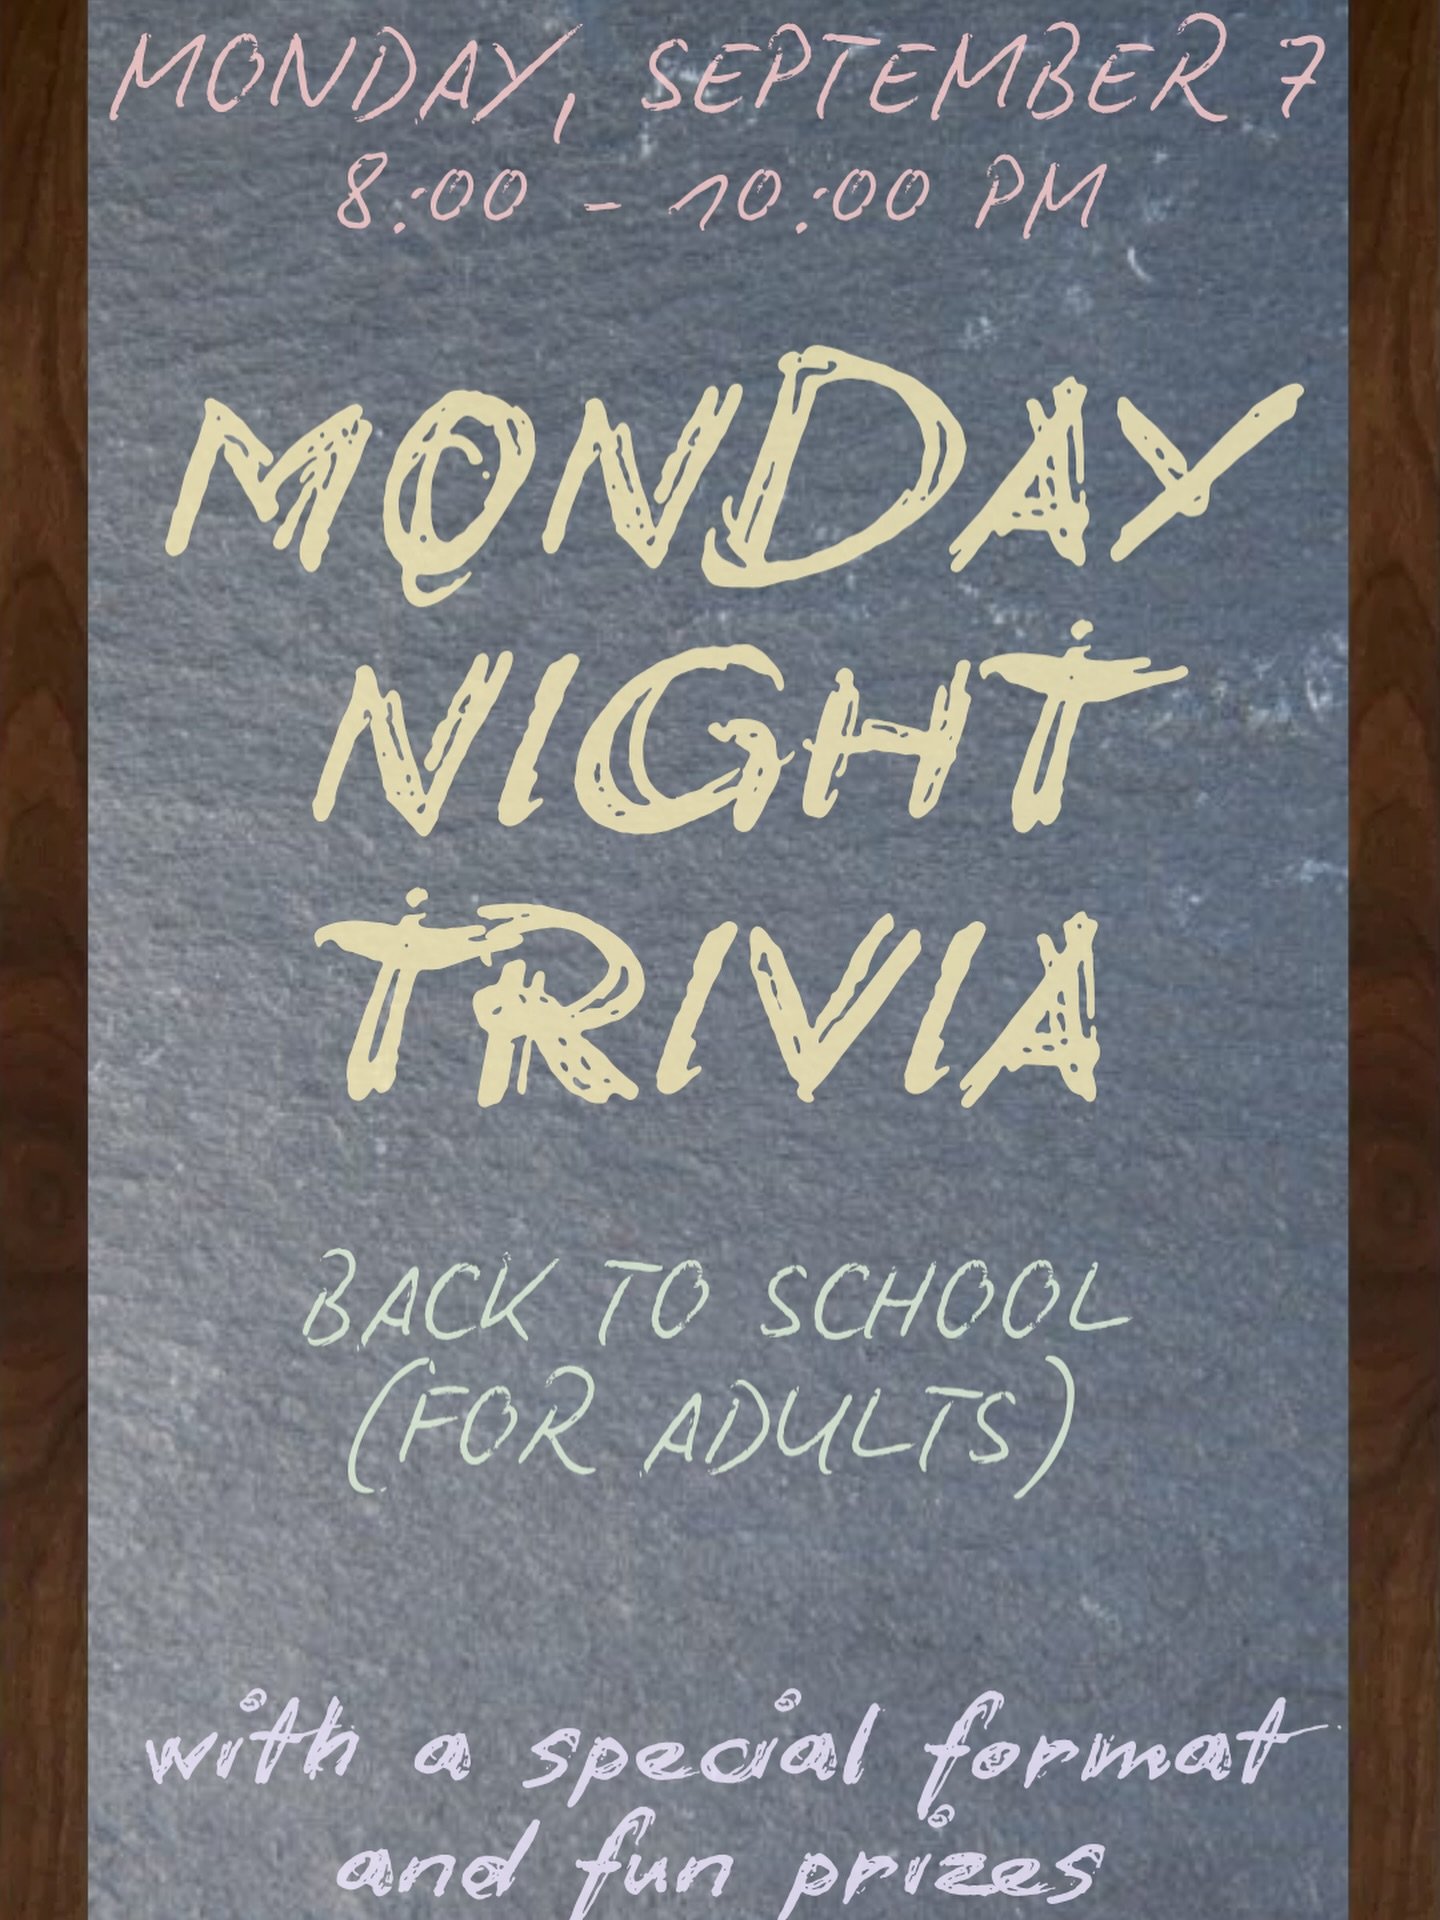 MONDAY, SEPTEMBER 7
8:00 - 10:00 PM
MONDAY
NIGHT
TRIVIA
BACK TO SCHOOL
(FOR ADULTS)
with a special format
and fun prizes